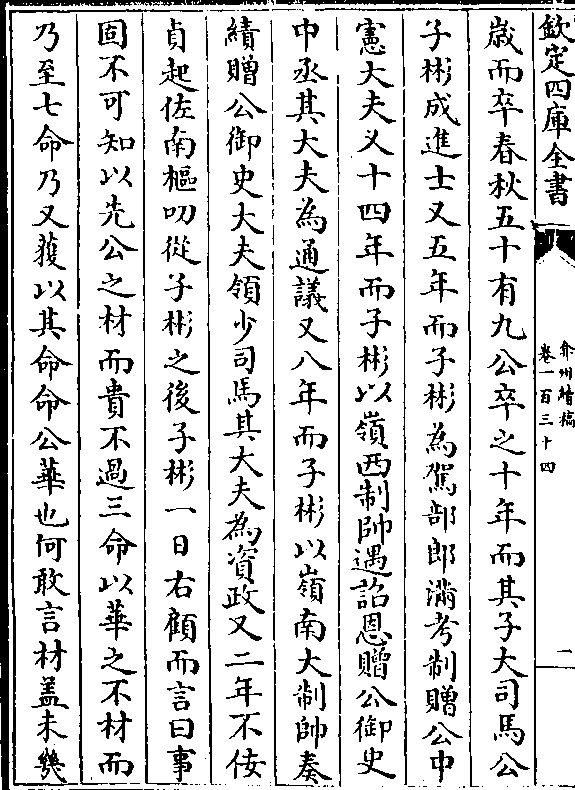 欽定四庫全書
弇州續稿
卷一百三十四
二
歲而卒春秋五十有九公卒之十年而其子大司馬公
子彬成進士又五年而子彬為駕部郎滿考制贈公中
憲大夫又十四年而子彬以嶺西制帥遇詔恩贈公御史
中丞其大夫為通議又八年而子彬以嶺南大制帥奏
績贈公御史大夫領少司馬其大夫為資政又二年不佞
貞起佐南樞叨從子彬之後子彬一日右顧而言曰事
固不可知以先公之材而貴不過三命以華之不材而
乃至七命乃又獲以其命命公華也何敢言材盖未幾